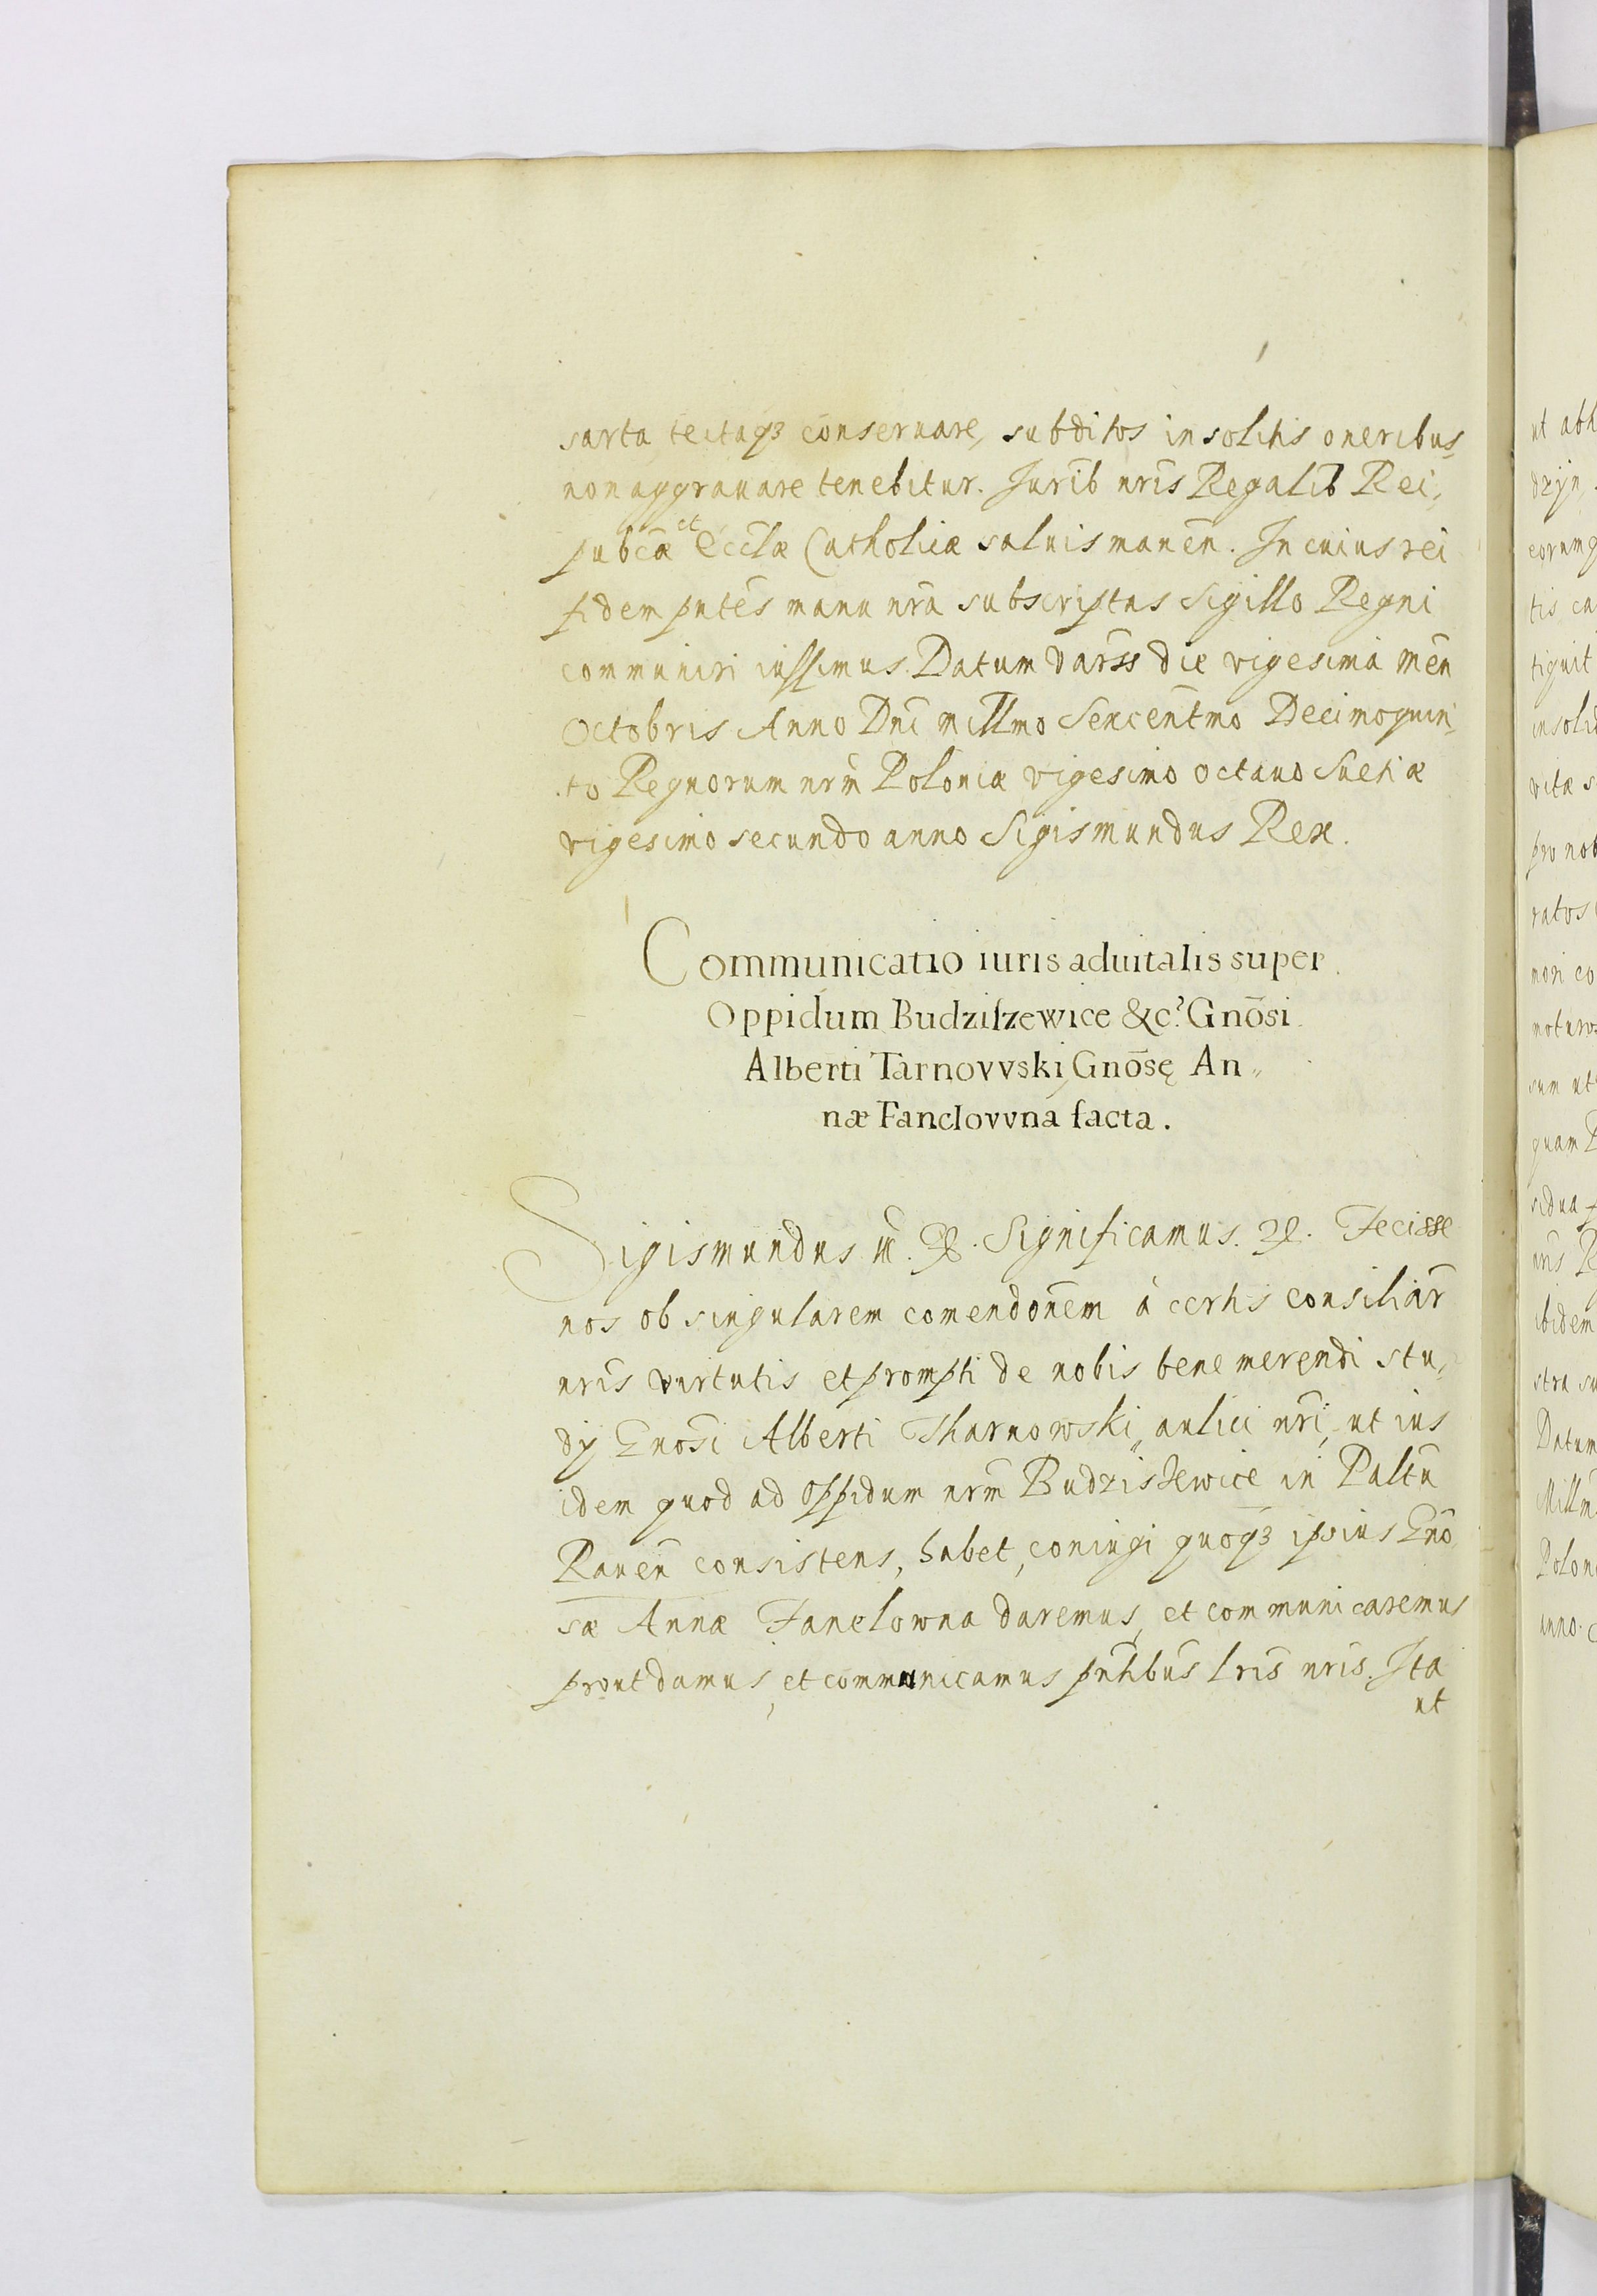 sarta tectaqꝫ conseruare, subditos insolitis oneribus
non aggrauare tenebitur. Jurib nr̃is Regalib Rei,
pub̃cæ et Eccl̃æ Catholicæ saluis maneñ. In cuius rei
fidem pñtes manu nr̃a subscriptas Sigillo Regni
communiri iussimus. Datum Varss̃ die vigesima Meñ
Octobris Anno Dñi Millmo Sexcentm̃o Decimoquin
to Regnorum nr̃m Poloniæ vigesimo octauo Suetiæ
vigesimo secundo anno Sigismundus Rex.
Communicatio iuris aduitalis super
Oppidum Budziſzewice &c. Gnõsi
Alberti Tarnovvski, Gnõsę An„
næ Fanclovvna facta.
Sigismundus Significamus. Fecisse
nos ob singularem comendoñem á certis consiliar̃
nr̃is virtutis et prompti de nobis bene merendi stu„
dÿ Gnosĩ Alberti Tharnowski, aulici nr̃i, ut ius
idem quod ad oppidum nr̃m Budziszewice in Paltũ
Raueñ consistens, habet, coniugi quoqꝫ ipsius Gnõ
sæ Annæ Fanclowna daremus, et communicaremus
prout damus, et communicamus pñtibus lr̃is nr̃is. Ita
ut